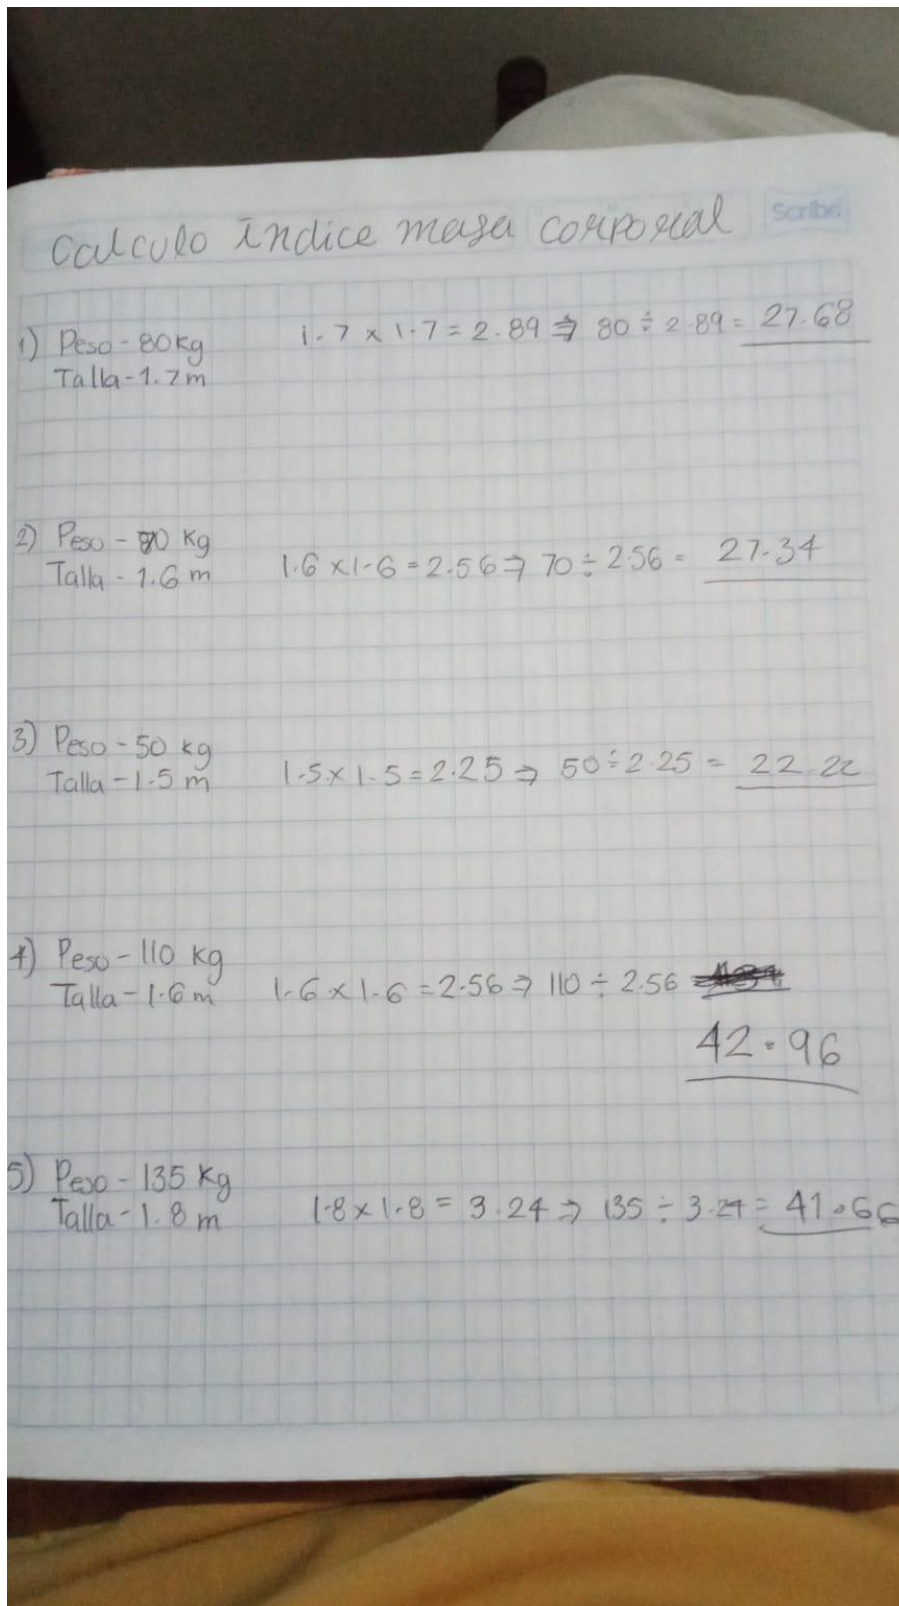 Scribe
Calculo indice masa corporal
1) Peso - 80 kg
Talla - 1.7 m
1.7 x 1.7 = 2.89 ⇒ 80 ÷ 2.89 = 27.68
2) Peso - 70 kg
Talla - 1.6 m
1.6 x 1.6 = 2.56 ⇒ 70 ÷ 2.56 = 27.34
3) Peso - 50 kg
Talla - 1.5 m
1.5 x 1.5 = 2.25 ⇒ 50 ÷ 2.25 = 22.22
4) Peso - 110 kg
Talla - 1.6 m
1.6 x 1.6 = 2.56 ⇒ 110 ÷ 2.56
42.96
5) Peso - 135 kg
Talla - 1.8 m
1.8 x 1.8 = 3.24 ⇒ 135 ÷ 3.24 = 41.66